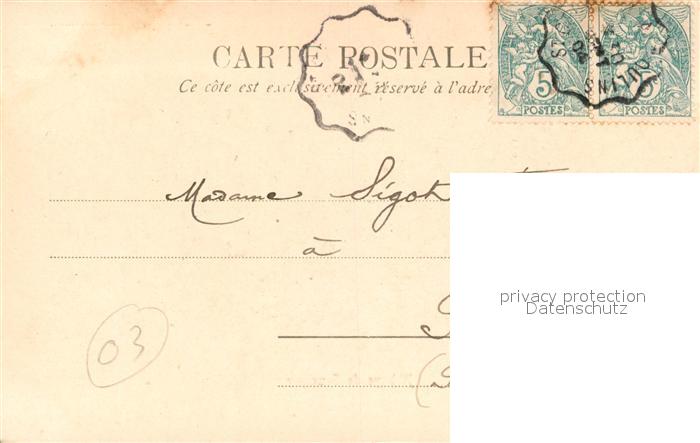 CARTE POSTALE
Ce côte est exclusivement réservé à l'adre
5
POSTES
5
POSTES
Madame Sigot
à
privacy protection
Datenschutz
S
(S
03